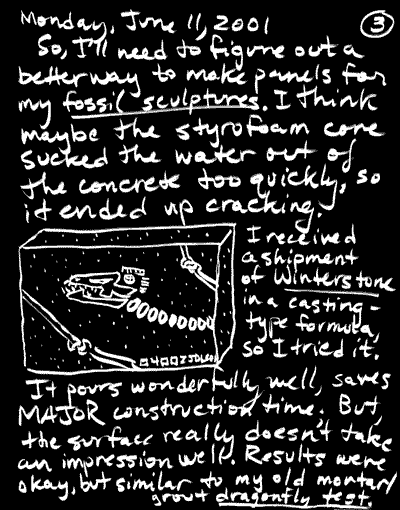 Monday, June 11, 2001
3
So, I'll need to figure out a
better way to make panels for
my fossil sculptures. I think
maybe the styrofoam core
sucked the water out of
the concrete too quickly, so
it ended up cracking.
I received
a shipment
of Winterstone
in a casting-
type formula,
so I tried it.
It pours wonderfully well, saves
MAJOR construction time. But,
the surface really doesn't take
an impression well. Results were
okay, but similar to my old mortar/
grout dragonfly test.